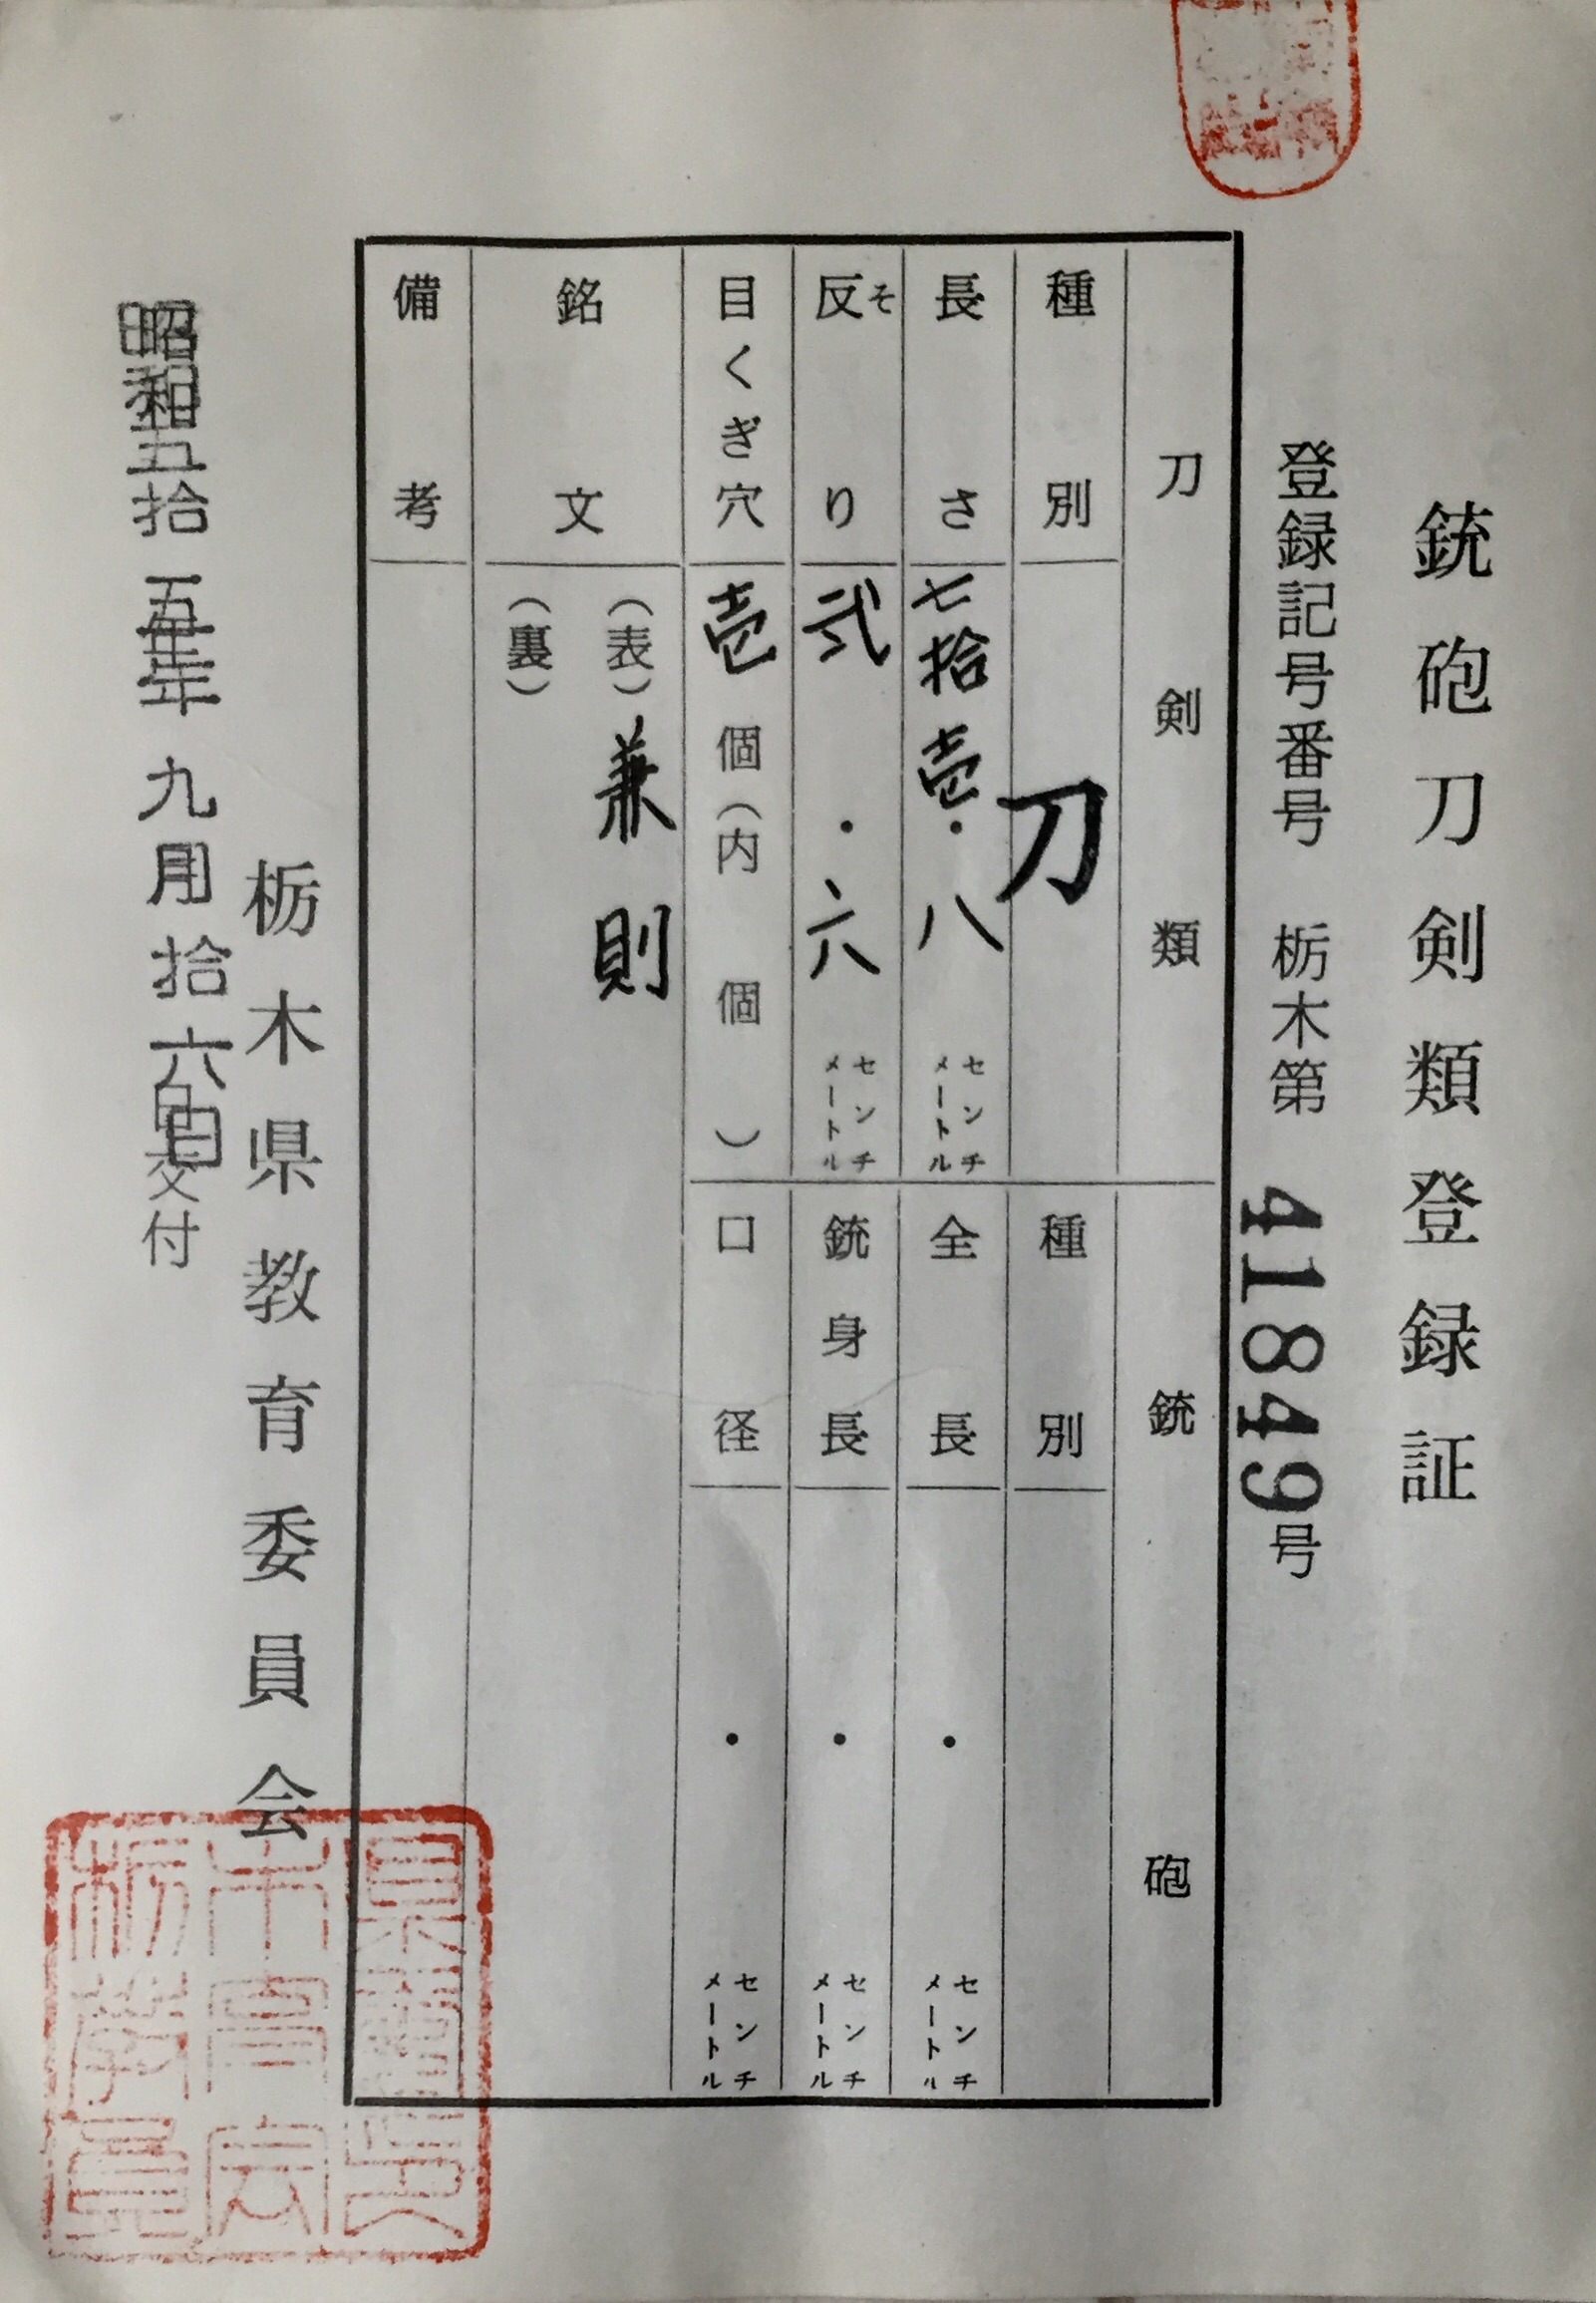 銃砲刀剣類登録証
登録記号番号 栃木第 41849号
刀剣類
種別 刀
長さ 七拾壱・八 センチメートル
反り そ 弐・六 センチメートル
目くぎ穴 壱個(内 個)
銘文 (表) 兼則
(裏)
備考
銃砲
種別
全長 ・ センチメートル
銃身長 ・ センチメートル
口径 ・ センチメートル
栃木県教育委員会
昭和五拾五年九月拾六日交付